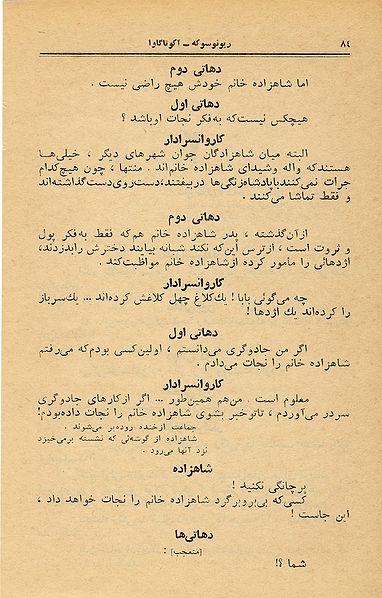 ۸٤ ریونوسوکه – آکوتاگاوا
دهاتی دوم
اما شاهزاده خانم خودش هیچ راضی نیست .
دهاتی اول
هیچکس نیست‌که به‌فکر نجات اوباشد ؟
کاروانسرادار
البته میان شاهزادگان جوان شهرهای دیگر ، خیلی‌ها
هستندکه واله وشیدای شاهزاده خانم‌اند . منتها ، چون هیچ‌کدام
جرات نمی‌کنندباپادشاه‌زنگی‌ها دربیفتند،دست‌روی‌دست‌گذاشته‌اند
و فقط تماشا می‌کنند .
دهاتی دوم
ازآن‌گذشته ، پدر شاهزاده خانم هم‌که فقط به‌فکر پول
و ثروت است ، ازترس این‌که نکند شبانه بیایند دخترش رابدزدند،
اژدهائی را مامور کرده ازشاهزاده خانم مواظبت‌کند .
کاروانسرادار
چه می‌گوئی بابا ! یك‌کلاغ چهل کلاغش کرده‌اند ... یك‌سرباز
را کرده‌اند یك اژدها !
دهاتی اول
اگر من جادوگری می‌دانستم ، اولین‌کسی بودم‌که می‌رفتم
شاهزاده خانم را نجات می‌دادم .
کاروانسرادار
معلوم است . من‌هم همین‌طور ... اگر ازکارهای جادوگری
سردر می‌آوردم ، تاتوخبر بشوی شاهزاده خانم را نجات داده‌بودم!
جماعت ازخنده روده‌بر می‌شوند .
شاهزاده از گوشه‌ئی که نشسته برمی‌خیزد
نزد آنها می‌رود .
شاهزاده
پرچانگی نکنید !
کسی‌که بی‌بروبرگرد شاهزاده خانم را نجات خواهد داد ،
این جاست !
دهاتی‌ها
[متعجب] :
شما ؟!